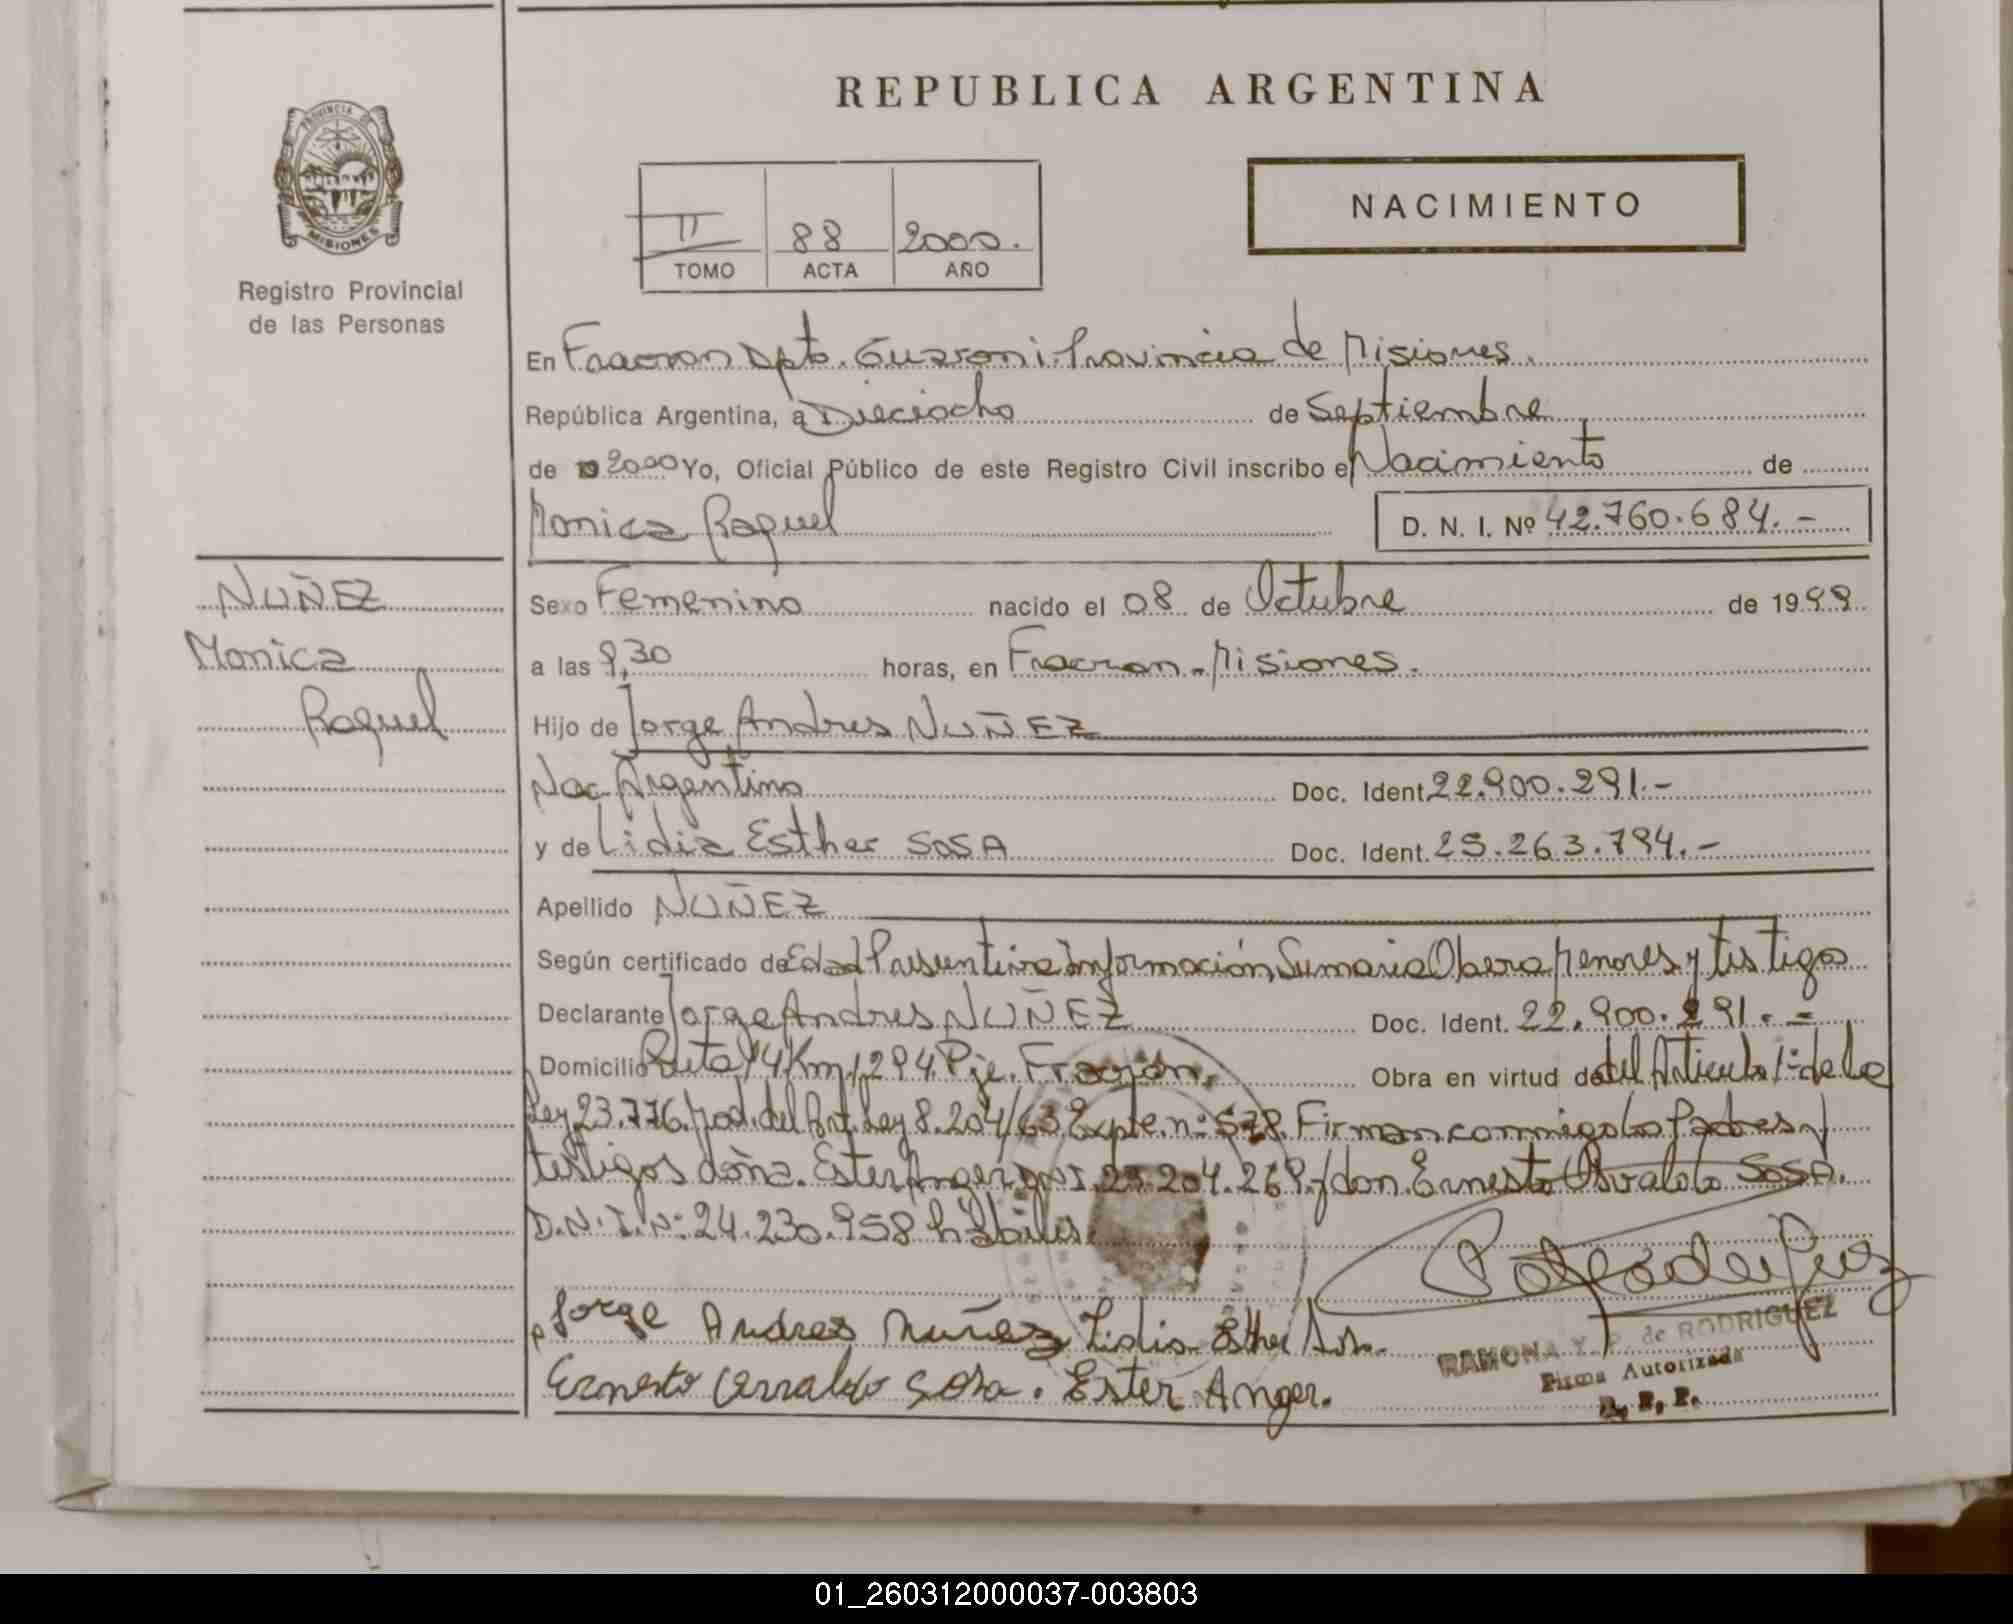 REPUBLICA ARGENTINA
PROVINCIA DE
MISIONES
Registro Provincial
de las Personas
II 88 2000.
TOMO ACTA AÑO
NACIMIENTO
En Fracran Dpto. Guarani. Provincia de Misiones.
República Argentina, a Dieciocho de Septiembre
de 2000 Yo, Oficial Público de este Registro Civil inscribo el Nacimiento de
Monica Raquel D. N. I. Nº 42.760.684.-
NUÑEZ
Monica
Raquel
Sexo Femenino nacido el 08 de Octubre de 1999
a las 9,30 horas, en Fracran - Misiones.
Hijo de Jorge Andres NUÑEZ
Nac. Argentino Doc. Ident. 22.900.291.-
y de Lidia Esther SOSA Doc. Ident. 25.263.794.-
Apellido NUÑEZ
Según certificado de Edad Presuntiva Información Sumaria Obera Menores y testigos
Declarante Jorge Andres NUÑEZ Doc. Ident. 22.900.291.-
Domicilio Ruta 14 Km, 294 Pje. Fracrán. Obra en virtud de del Articulo 1º de la
Ley 23.776. mod. del Art. Ley 8.204/63 Expte. nº 578. Firman conmigo los Padres y
testigos doña. Ester Anger DNI. 23.204.269. y don. Ernesto Osvaldo SOSA.
D.N.I.Nº 24.230.958 hábiles.
Jorge Andres Nuñez Lidia Esther Sosa.
Ernesto Osvaldo Sosa. Ester Anger.
RAMONA Y. P. de RODRIGUEZ
Firma Autorizada
R. P. P.
01_260312000037-003803